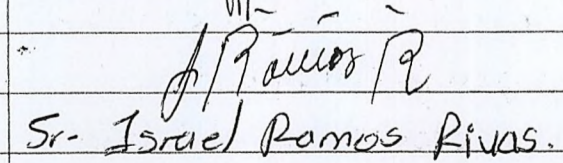 J Ramos R
Sr- Israel Ramos Rivas.